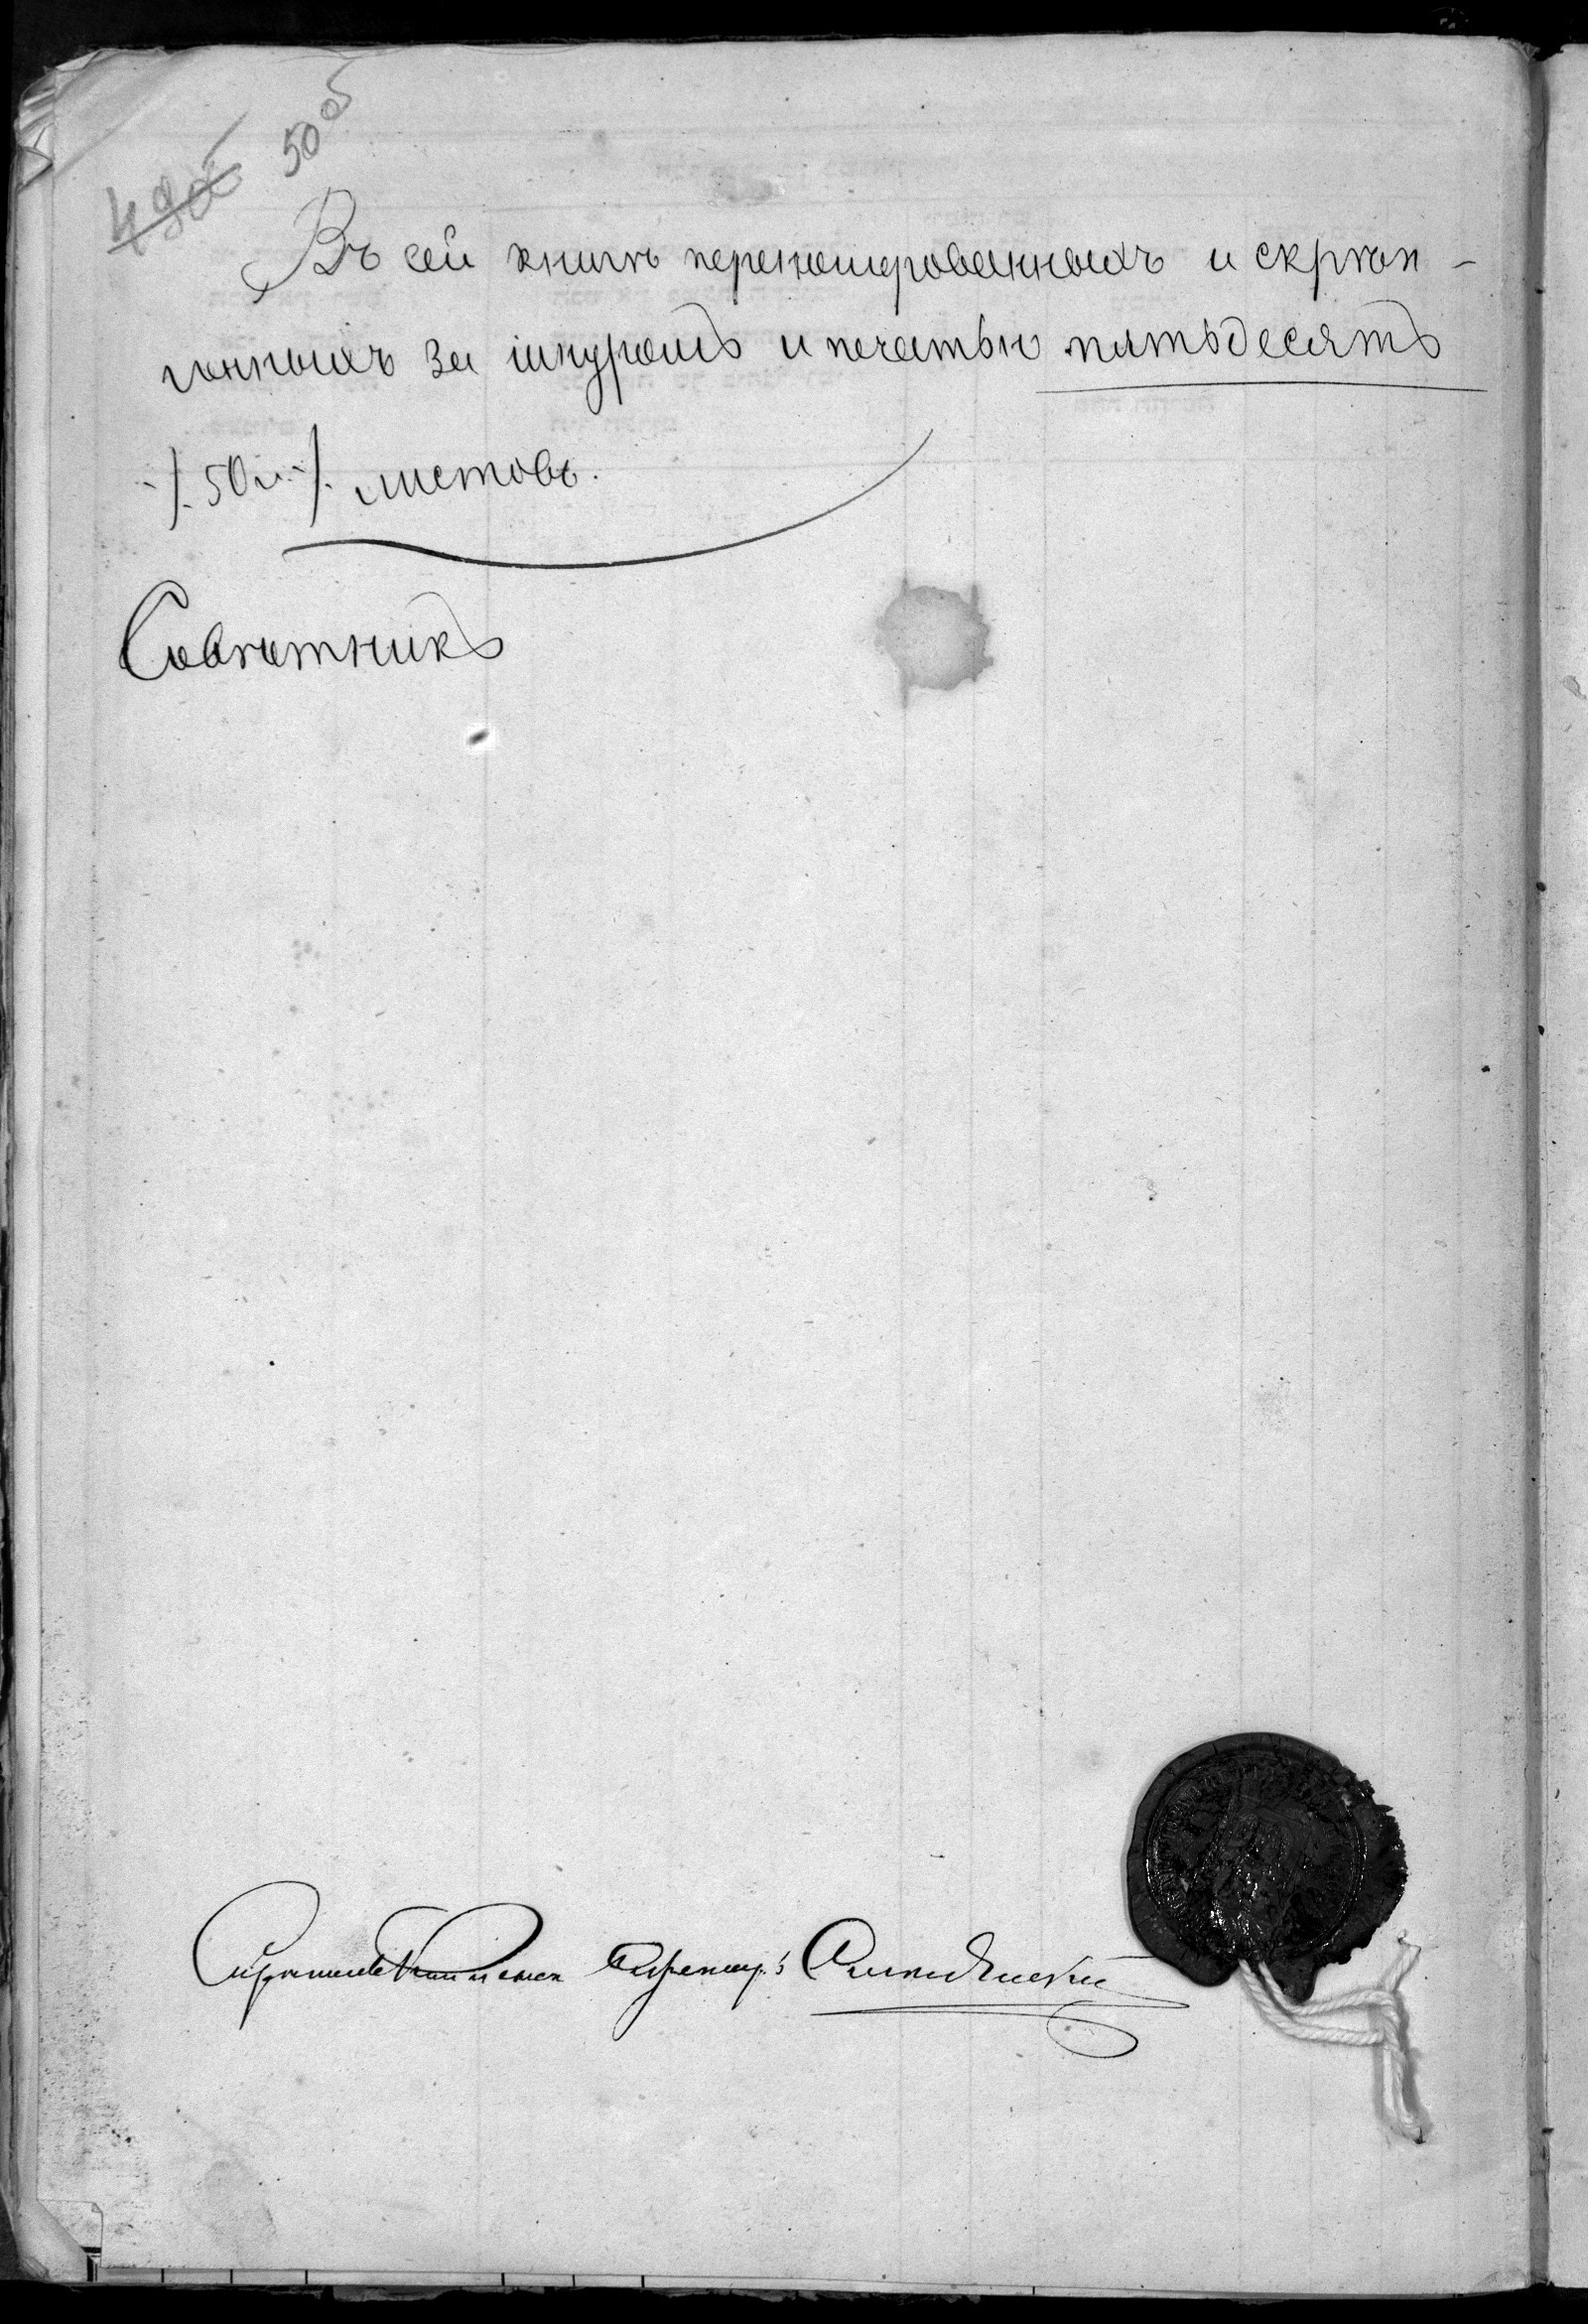 49об 50об
Въ сей книгѣ перенумерованныхъ и скрѣп-
ленныхъ за шнуромъ и печатью пятьдесятъ
./. 50 л ./. листовъ.
Совѣтникъ